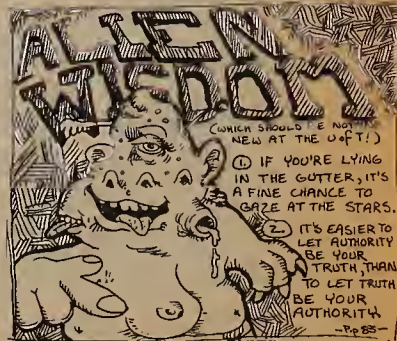 ALIEN
WISDOM
(WHICH SHOULD BE NOTHING
NEW AT THE U of T!)
1. IF YOU'RE LYING
IN THE GUTTER, IT'S
A FINE CHANCE TO
GAZE AT THE STARS.
2. IT'S EASIER TO
LET AUTHORITY
BE YOUR
TRUTH, THAN
TO LET TRUTH
BE YOUR
AUTHORITY.
-Pip 83-